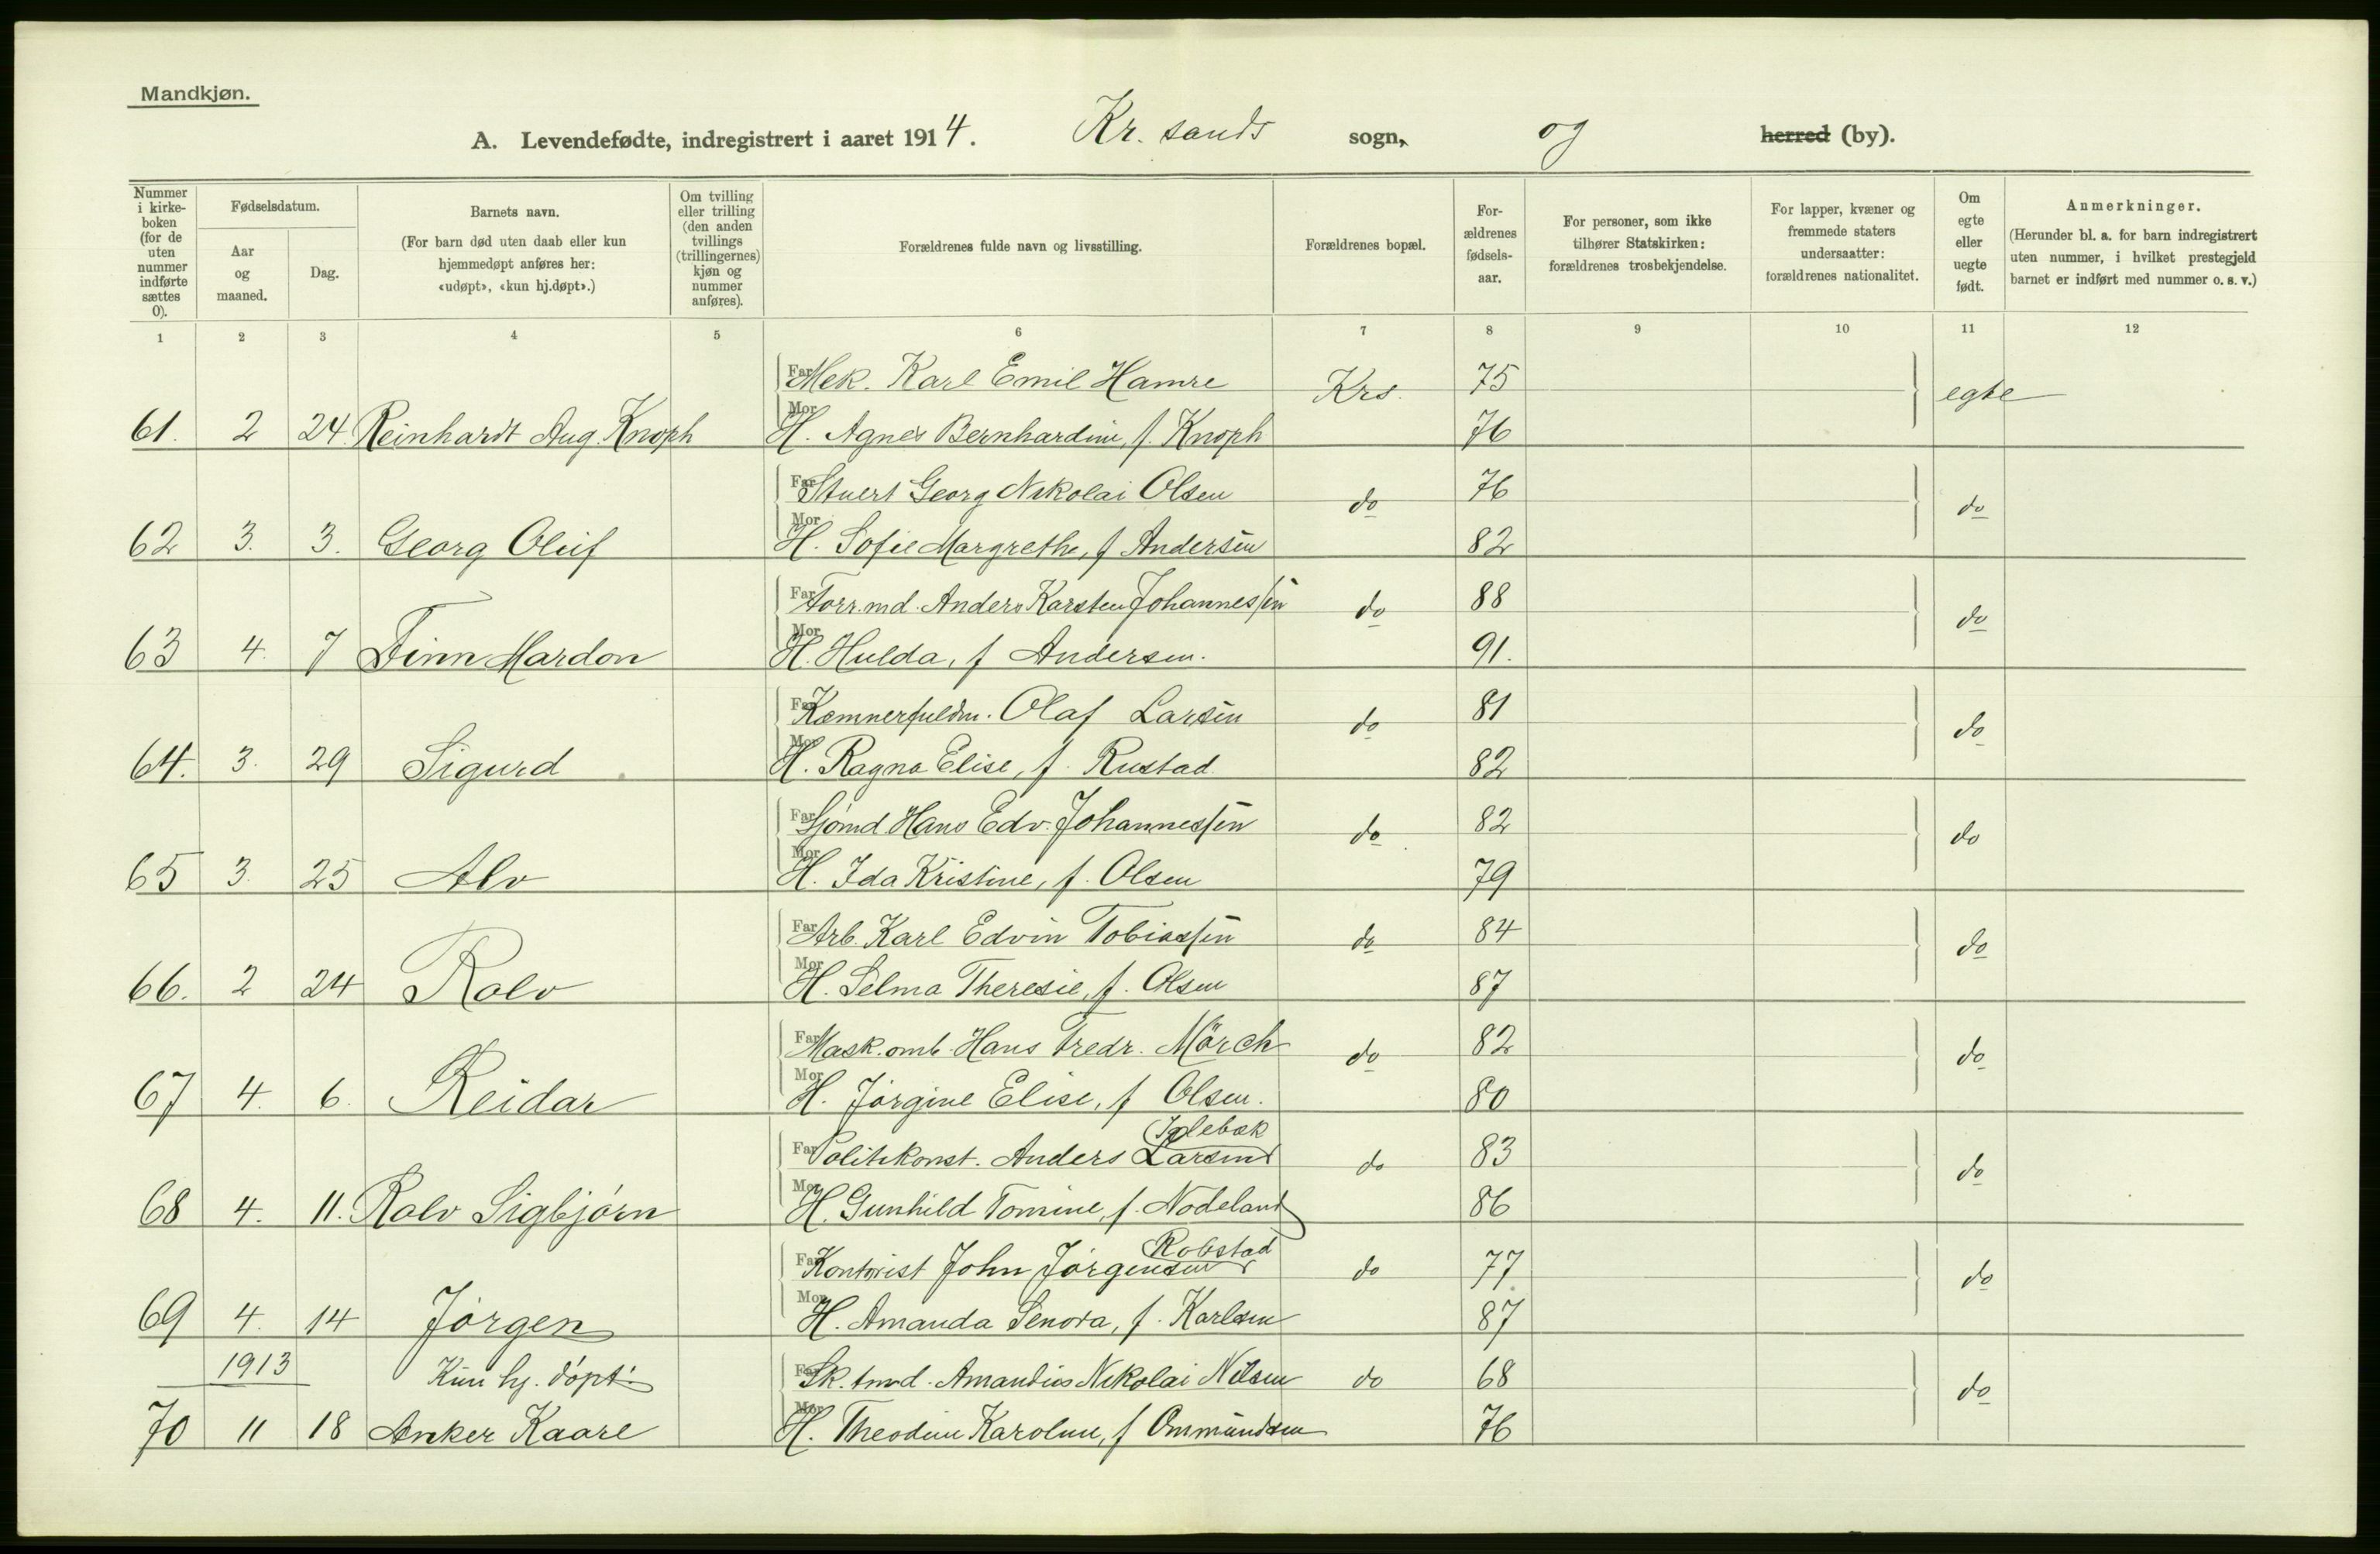 Mandkjøn.
A. Levendefødte, indregistrert i aaret 1914. Kr. sands sogn, og herred (by).
Nummer i kirke-boken (for de uten nummer indførte sættes 0).
Fødselsdatum.
Aar og maaned.
Dag.
Barnets navn.
(For barn død uten daab eller kun hjemmedøpt anføres her: «udøpt», «kun hj.døpt».)
Om tvilling eller trilling (den anden tvillings (trillingernes) kjøn og nummer anføres).
Forældrenes fulde navn og livsstilling.
Forældrenes bopæl.
For-ældrenes fødsels-aar.
For personer, som ikke tilhører Statskirken: forældrenes trosbekjendelse.
For lapper, kvæner og fremmede staters undersaatter: forældrenes nationalitet.
Om egte eller uegte født.
Anmerkninger.
(Herunder bl. a. for barn indregistrert uten nummer, i hvilket prestegjeld barnet er indført med nummer o. s. v.)
1 2 3 4 5 6 7 8 9 10 11 12
Far Mek. Karl Emil Hamre Krs. 75 egte
61. 2 24. Reinhardt Aug. Knoph Mor H. Agnes Bernhardine, f. Knoph 76
Far Stuert Georg Nikolai Olsen do 76 do
62 3. 3. Georg Oluf Mor H. Sofie Margrethe, f Andersen 82
Far Forr.md. Anders Karsten Johannessen do 88 do
63 4. 7 Finn Mardon Mor H. Hulda, f Andersen. 91.
Far Kæmnerfuldm. Olaf Larsen do 81 do
64. 3. 29 Sigurd Mor H. Ragna Elise, f. Rustad 82
Far Sjömd Hans Edv. Johannessen do 82 do
65 3. 25 Alv Mor H. Ida Kristine, f. Olsen 79
Far Arb. Karl Edvin Tobiassen do 84 do
66. 2 24 Rolv Mor H. Selma Theresie, f. Olsen 87
Far Mask.omb. Hans Fredr. Mörch do 82 do
67 4. 6. Reidar Mor H. Jörgine Elise, f Olsen. 80
Iglebæk
Far Politikonst. Anders Larsen do 83 do
68 4. 11. Rolv Sigbjörn Mor H. Gunhild Tomine, f. Nodeland 86
Robstad
Far Kontorist John Jörgensen do 77 do
69 4. 14 Jörgen Mor H. Amanda Senora, f. Karlsen 87
1913 Kun hj. döpt. Far Sk. tmd. Amandus Nikolai Nilsen do 68 do
70 11 18 Anker Kaare Mor H. Theodine Karoline, f Ommundsen 76